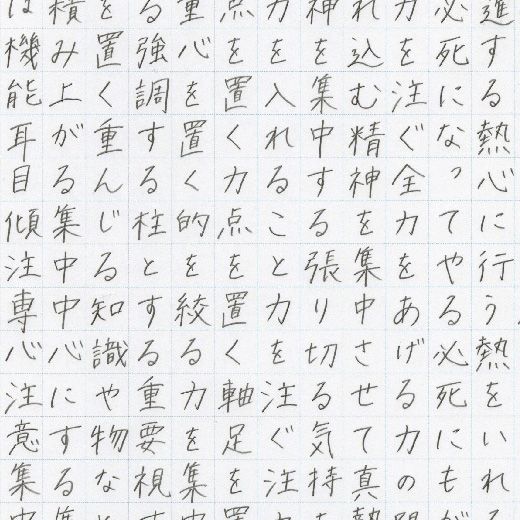 進する熱心に行う熱をいれる
必死になってやる必死にもが
力を注ぐ全力をあげる力の限
れ込む精神を集中させて真熱
神を集中する張り切る気持を
力を入れること力を注ぐ注力
点を置く力点を置く軸足を置
重心を置く的を絞る力を集中
る強調する柱とする重要視す
を置く重んじる知識や物など
積み上がる集中中心にする集
は機能耳目傾注専心注意集中